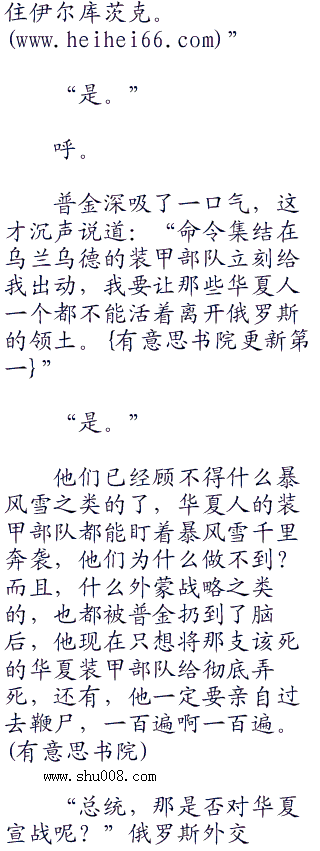 住伊尔库茨克。
(www.heihei66.com)”
“是。”
呼。
普金深吸了一口气，这
才沉声说道：“命令集结在
乌兰乌德的装甲部队立刻给
我出动，我要让那些华夏人
一个都不能活着离开俄罗斯
的领土。{有意思书院更新第
一}”
“是。”
他们已经顾不得什么暴
风雪之类的了，华夏人的装
甲部队都能盯着暴风雪千里
奔袭，他们为什么做不到？
而且，什么外蒙战略之类
的，也都被普金扔到了脑
后，他现在只想将那支该死
的华夏装甲部队给彻底弄
死，还有，他一定要亲自过
去鞭尸，一百遍啊一百遍。
(有意思书院)
www.shu008.com
“总统，那是否对华夏
宣战呢？”俄罗斯外交